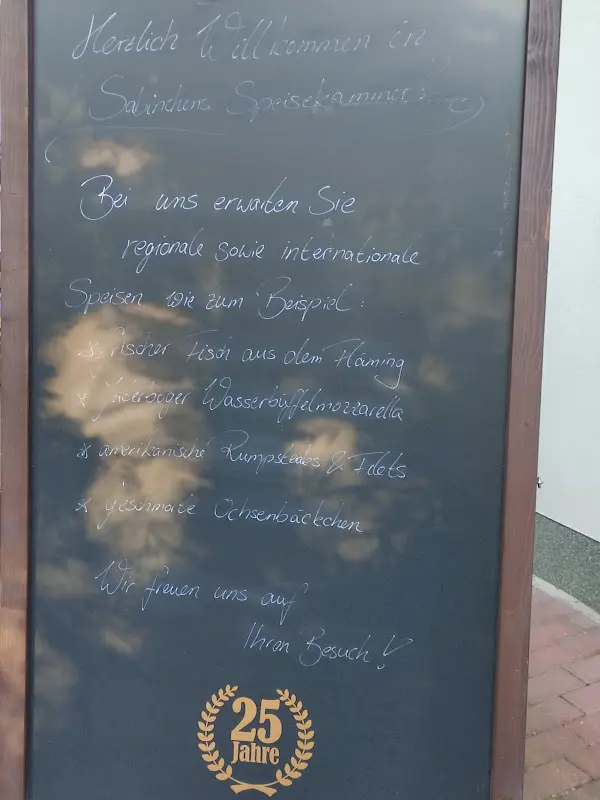 Herzlich Willkommen in
Sabinchens Speisekammer
Bei uns erwarten Sie
regionale sowie internationale
Speisen wie zum Beispiel:
* frischer Fisch aus dem Fläming
* Jüterboger Wasserbüffelmozzarella
* amerikanische Rumpsteaks & Filets
* geschmorte Ochsenbäckchen
Wir freuen uns auf
Ihren Besuch!
25
Jahre